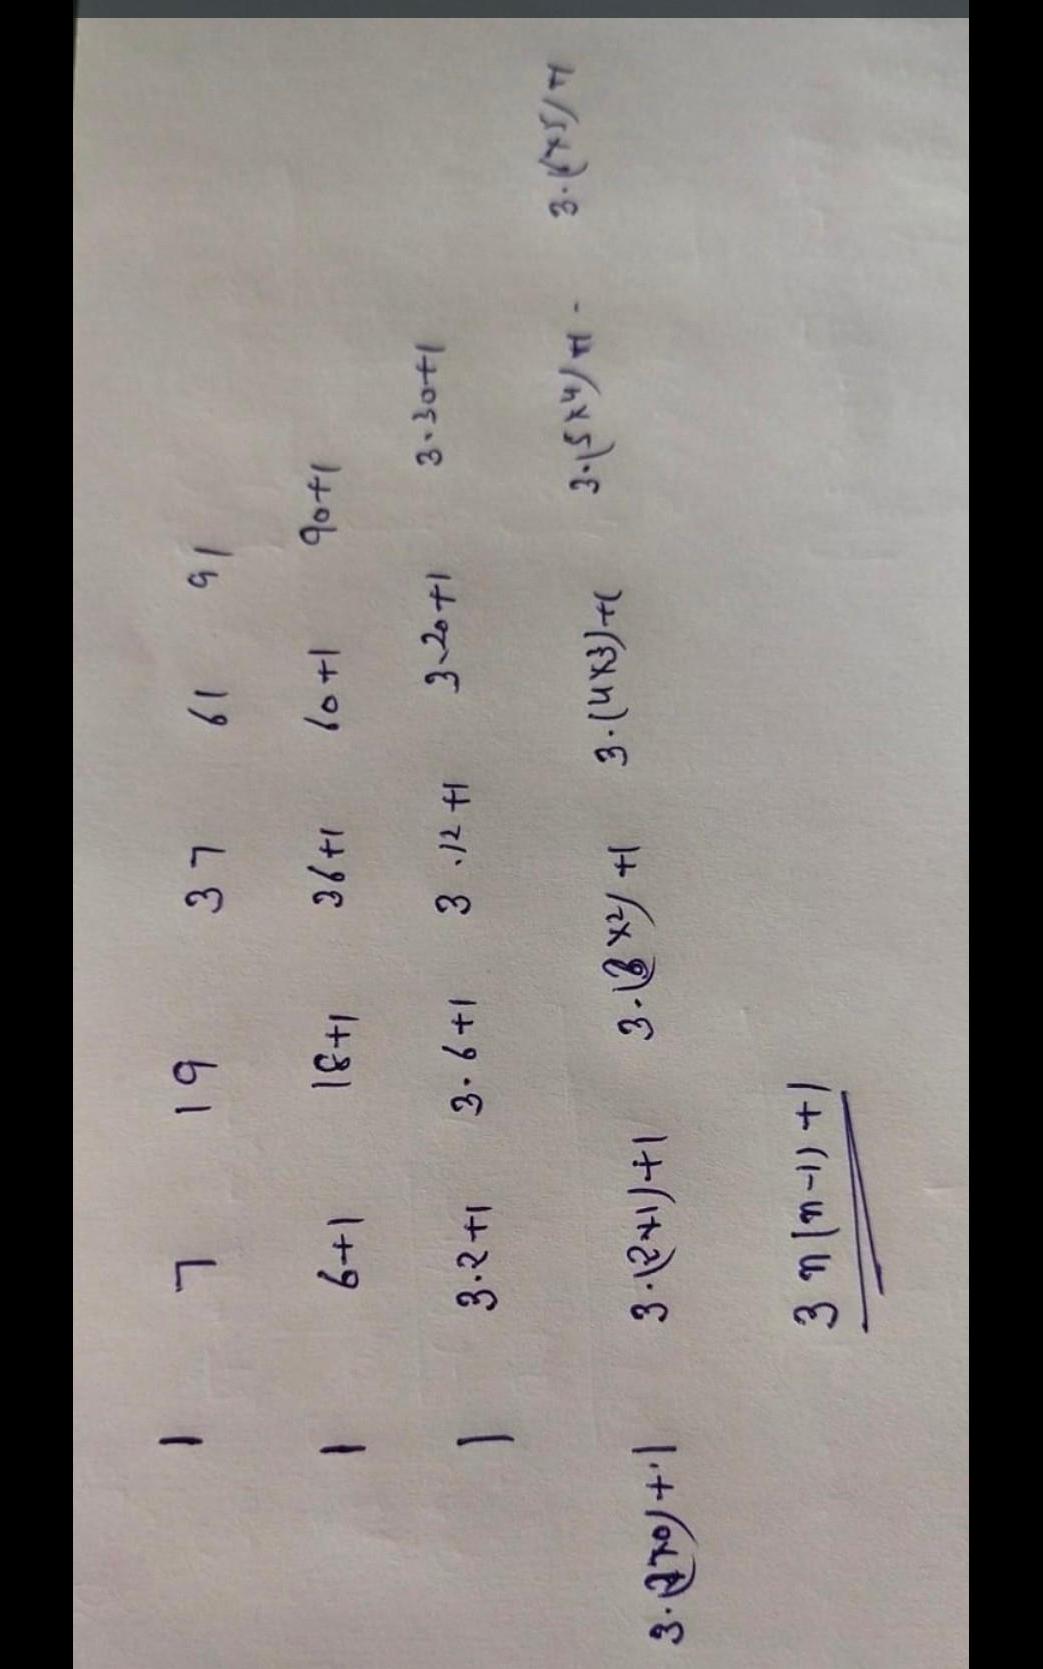 1 7 19 37 61 91
1 6+1 18+1 36+1 60+1 90+1
1 3.2+1 3.6+1 3.12+1 3.20+1 3.30+1
3.(1x0)+1 3.(2x1)+1 3.(3x2)+1 3.(4x3)+1 3.(5x4)+1 3.(6x5)+1
3n(n-1)+1